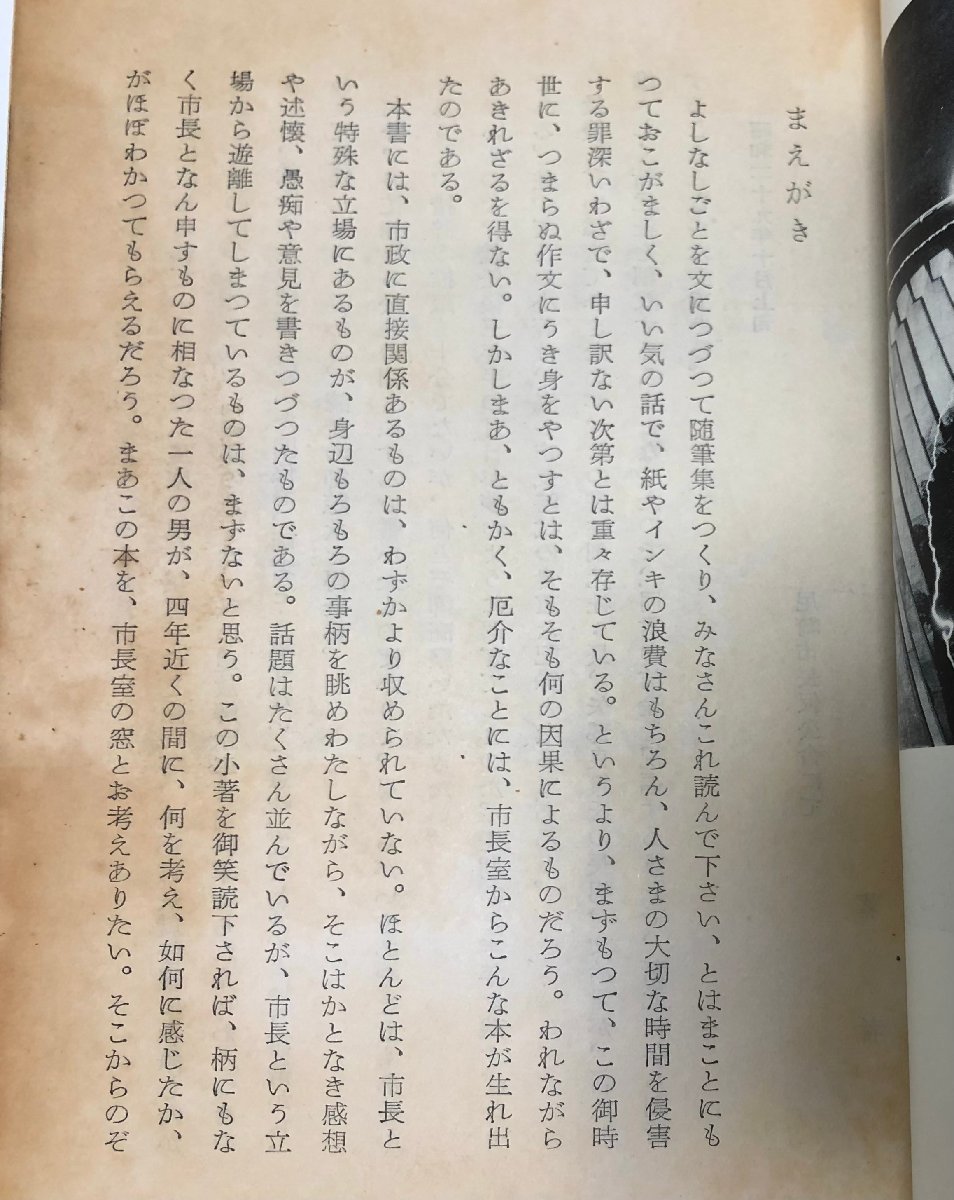 まえがき
よしなしごとを文につづつて随筆集をつくり、みなさんこれ読んで下さい、とはまことにも
つておこがましく、いい気の話で、紙やインキの浪費はもちろん、人さまの大切な時間を侵害
する罪深いわざで、申し訳ない次第とは重々存じている。というより、まずもつて、この御時
世に、つまらぬ作文にうき身をやつすとは、そもそも何の因果によるものだろう。われながら
あきれざるを得ない。しかしまあ、ともかく、厄介なことには、市長室からこんな本が生れ出
たのである。
本書には、市政に直接関係あるものは、わずかより収められていない。ほとんどは、市長と
いう特殊な立場にあるものが、身辺もろもろの事柄を眺めわたしながら、そこはかとなき感想
や述懐、愚痴や意見を書きつづつたものである。話題はたくさん並んでいるが、市長という立
場から遊離してしまつているものは、まずないと思う。この小著を御笑読下されば、柄にもな
く市長となん申すものに相なつた一人の男が、四年近くの間に、何を考え、如何に感じたか、
がほぼわかつてもらえるだろう。まあこの本を、市長室の窓とお考えありたい。そこからのぞ